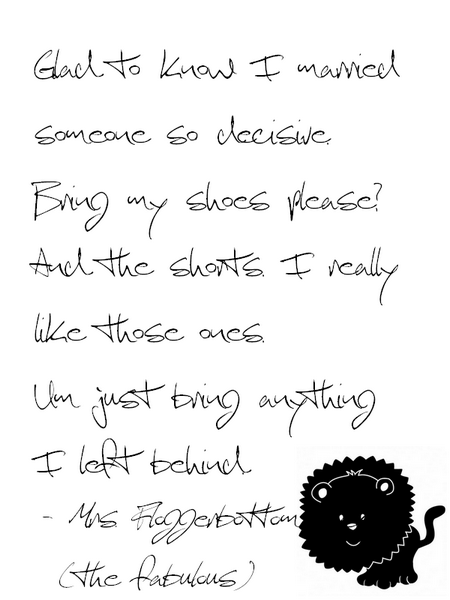 Glad to know I married
someone so decisive.
Bring my shoes please?
And the shorts. I really
like those ones.
Um just bring anything
I left behind
- Mrs Floggerbottom
(the fabulous)